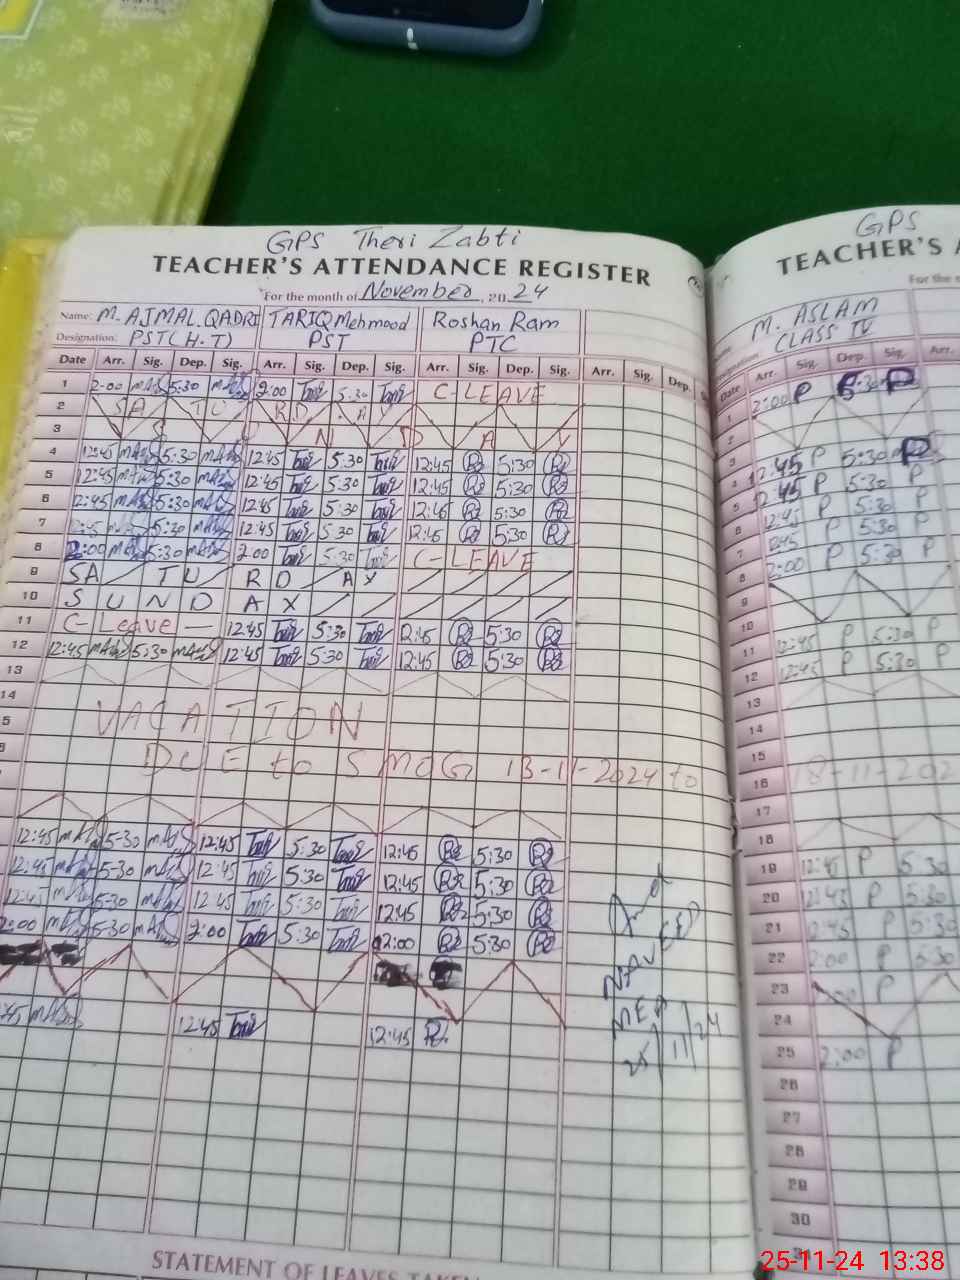 GPS Theri Zabti
TEACHER'S ATTENDANCE REGISTER
For the month of November, 2024
Name: M. AJMAL QADRI TARIQ Mehmood Roshan Ram
Designation: PST (H.T) PST PTC
Date Arr. Sig. Dep. Sig. Arr. Sig. Dep. Sig. Arr. Sig. Dep. Sig. Arr. Sig. Dep.
1 2-00 5:30 2:00 5:30 C-LEAVE
2 SA TU RD A
3 S U N D A Y
4 12:45 5:30 12:45 5:30 12:45 5:30
5 12:45 5:30 12:45 5:30 12:45 5:30
6 12:45 5:30 12:45 5:30 12:45 5:30
7 12:45 5:30 12:45 5:30 12:45 5:30
8 2:00 5:30 2:00 5:30 C-LEAVE
9 SA TU RD AY
10 S U N D A Y
11 C-Leave — 12:45 5:30 2:45 5:30
12 12:45 5:30 12:45 5:30 12:45 5:30
13
14
VACATION
DUE to SMOG 13-11-2024 to
12:45 5-30 12:45 5:30 12:45 5:30
12:45 5-30 12:45 5:30 12:45 5:30
12:45 5-30 12:45 5:30 12:45 5:30
2:00 5-30 2:00 5:30 12:00 5:30
12:45 12:45
NAVEED
MEA
25/11/24
STATEMENT OF LEAVES TAKEN
GPS
TEACHER'S A
For the
M. ASLAM
CLASS IV
Date Arr. Sig. Dep. Sig. Arr.
1 2:00 P 5:30 P
2
3
4 12:45 P 5:30 P
5 12:45 P 5:30 P
6 12:45 P 5:30 P
7 12:45 P 5:30 P
8 2:00 P 5:30 P
9
10
11 12:45 P 5:30 P
12 12:45 P 5:30 P
13
14
15
16 18-11-202
17
18
19 12:45 P 5:30
20 12:45 P 5:30
21 12:45 P 5:30
22 2:00 P 5:30
23 P
24
25 2:00 P
26
27
28
29
30
31
25-11-24 13:38